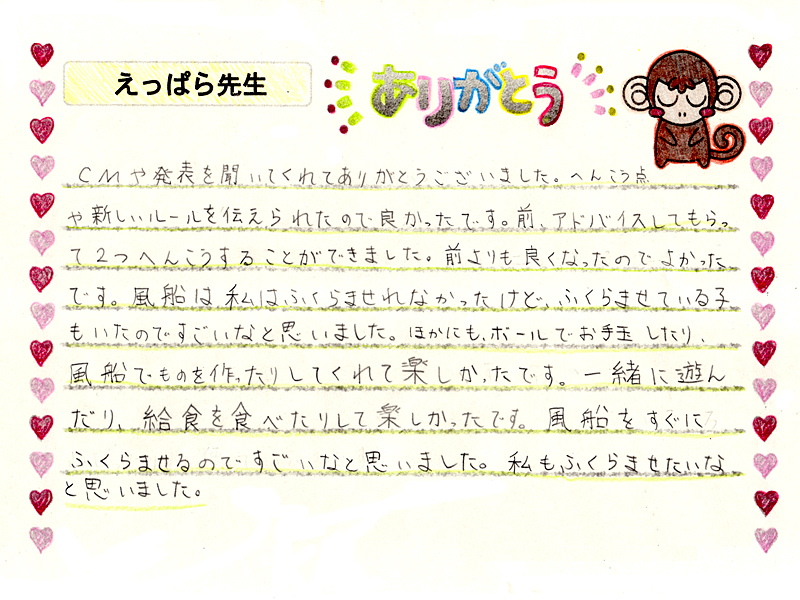 えっぱら先生
ありがとう
CMや発表を聞いてくれてありがとうございました。へんこう点
や新しいルールを伝えられたので良かったです。前、アドバイスしてもらっ
て2つへんこうすることができました。前よりも良くなったのでよかった
です。風船は私はふくらませれなかったけど、ふくらませている子
もいたのですごいなと思いました。ほかにも、ボールでお手玉したり、
風船でものを作ったりしてくれて楽しかったです。一緒に遊ん
だり、給食を食べたりして楽しかったです。風船をすぐに
ふくらませるのですごいなと思いました。私もふくらませたいな
と思いました。